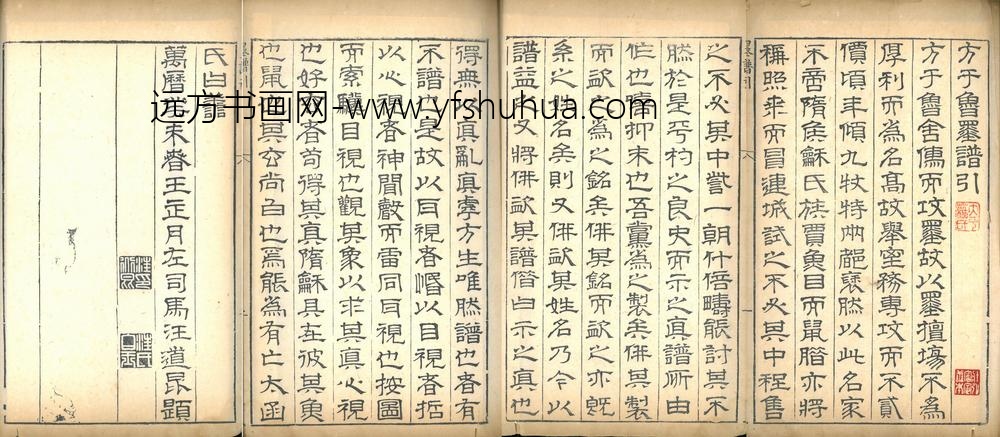 方于魯墨譜引
方于魯舍儒而攻墨故以墨擅場不為
厚利而為名高故舉室務專攻而不貳
價頃年傾九牧特兩然以此名家
不啻隋矦龢氏族賈魚目而鼠腊亦將
稱照乘而冒連城試之不必其中程售
之不必其中訾一朝什倍疇能討其不
然於是乎杓之良史而示之真譜所由
作也噫抑末也吾黨為之製矣倂其製
而為之銘矣倂其銘而之亦旣
系之姓名矣則又倂其姓名乃今以
譜益又將倂其譜僭曰示之真也
墨譜引
得無以真亂真虖方生唯然譜也者有
不譜也是故以耳視者惛以目視者
以心視者神聞而雷同耳視也按圖
而索驪目視也觀其象以求其真心視
也好者苟得其真隋龢具在彼其魚
也鼠也其玄尚白也為能為有亡大函
氏曰譜
萬曆癸未春王正月左司馬汪道昆題
远方书画网-www.yfshuhua.com